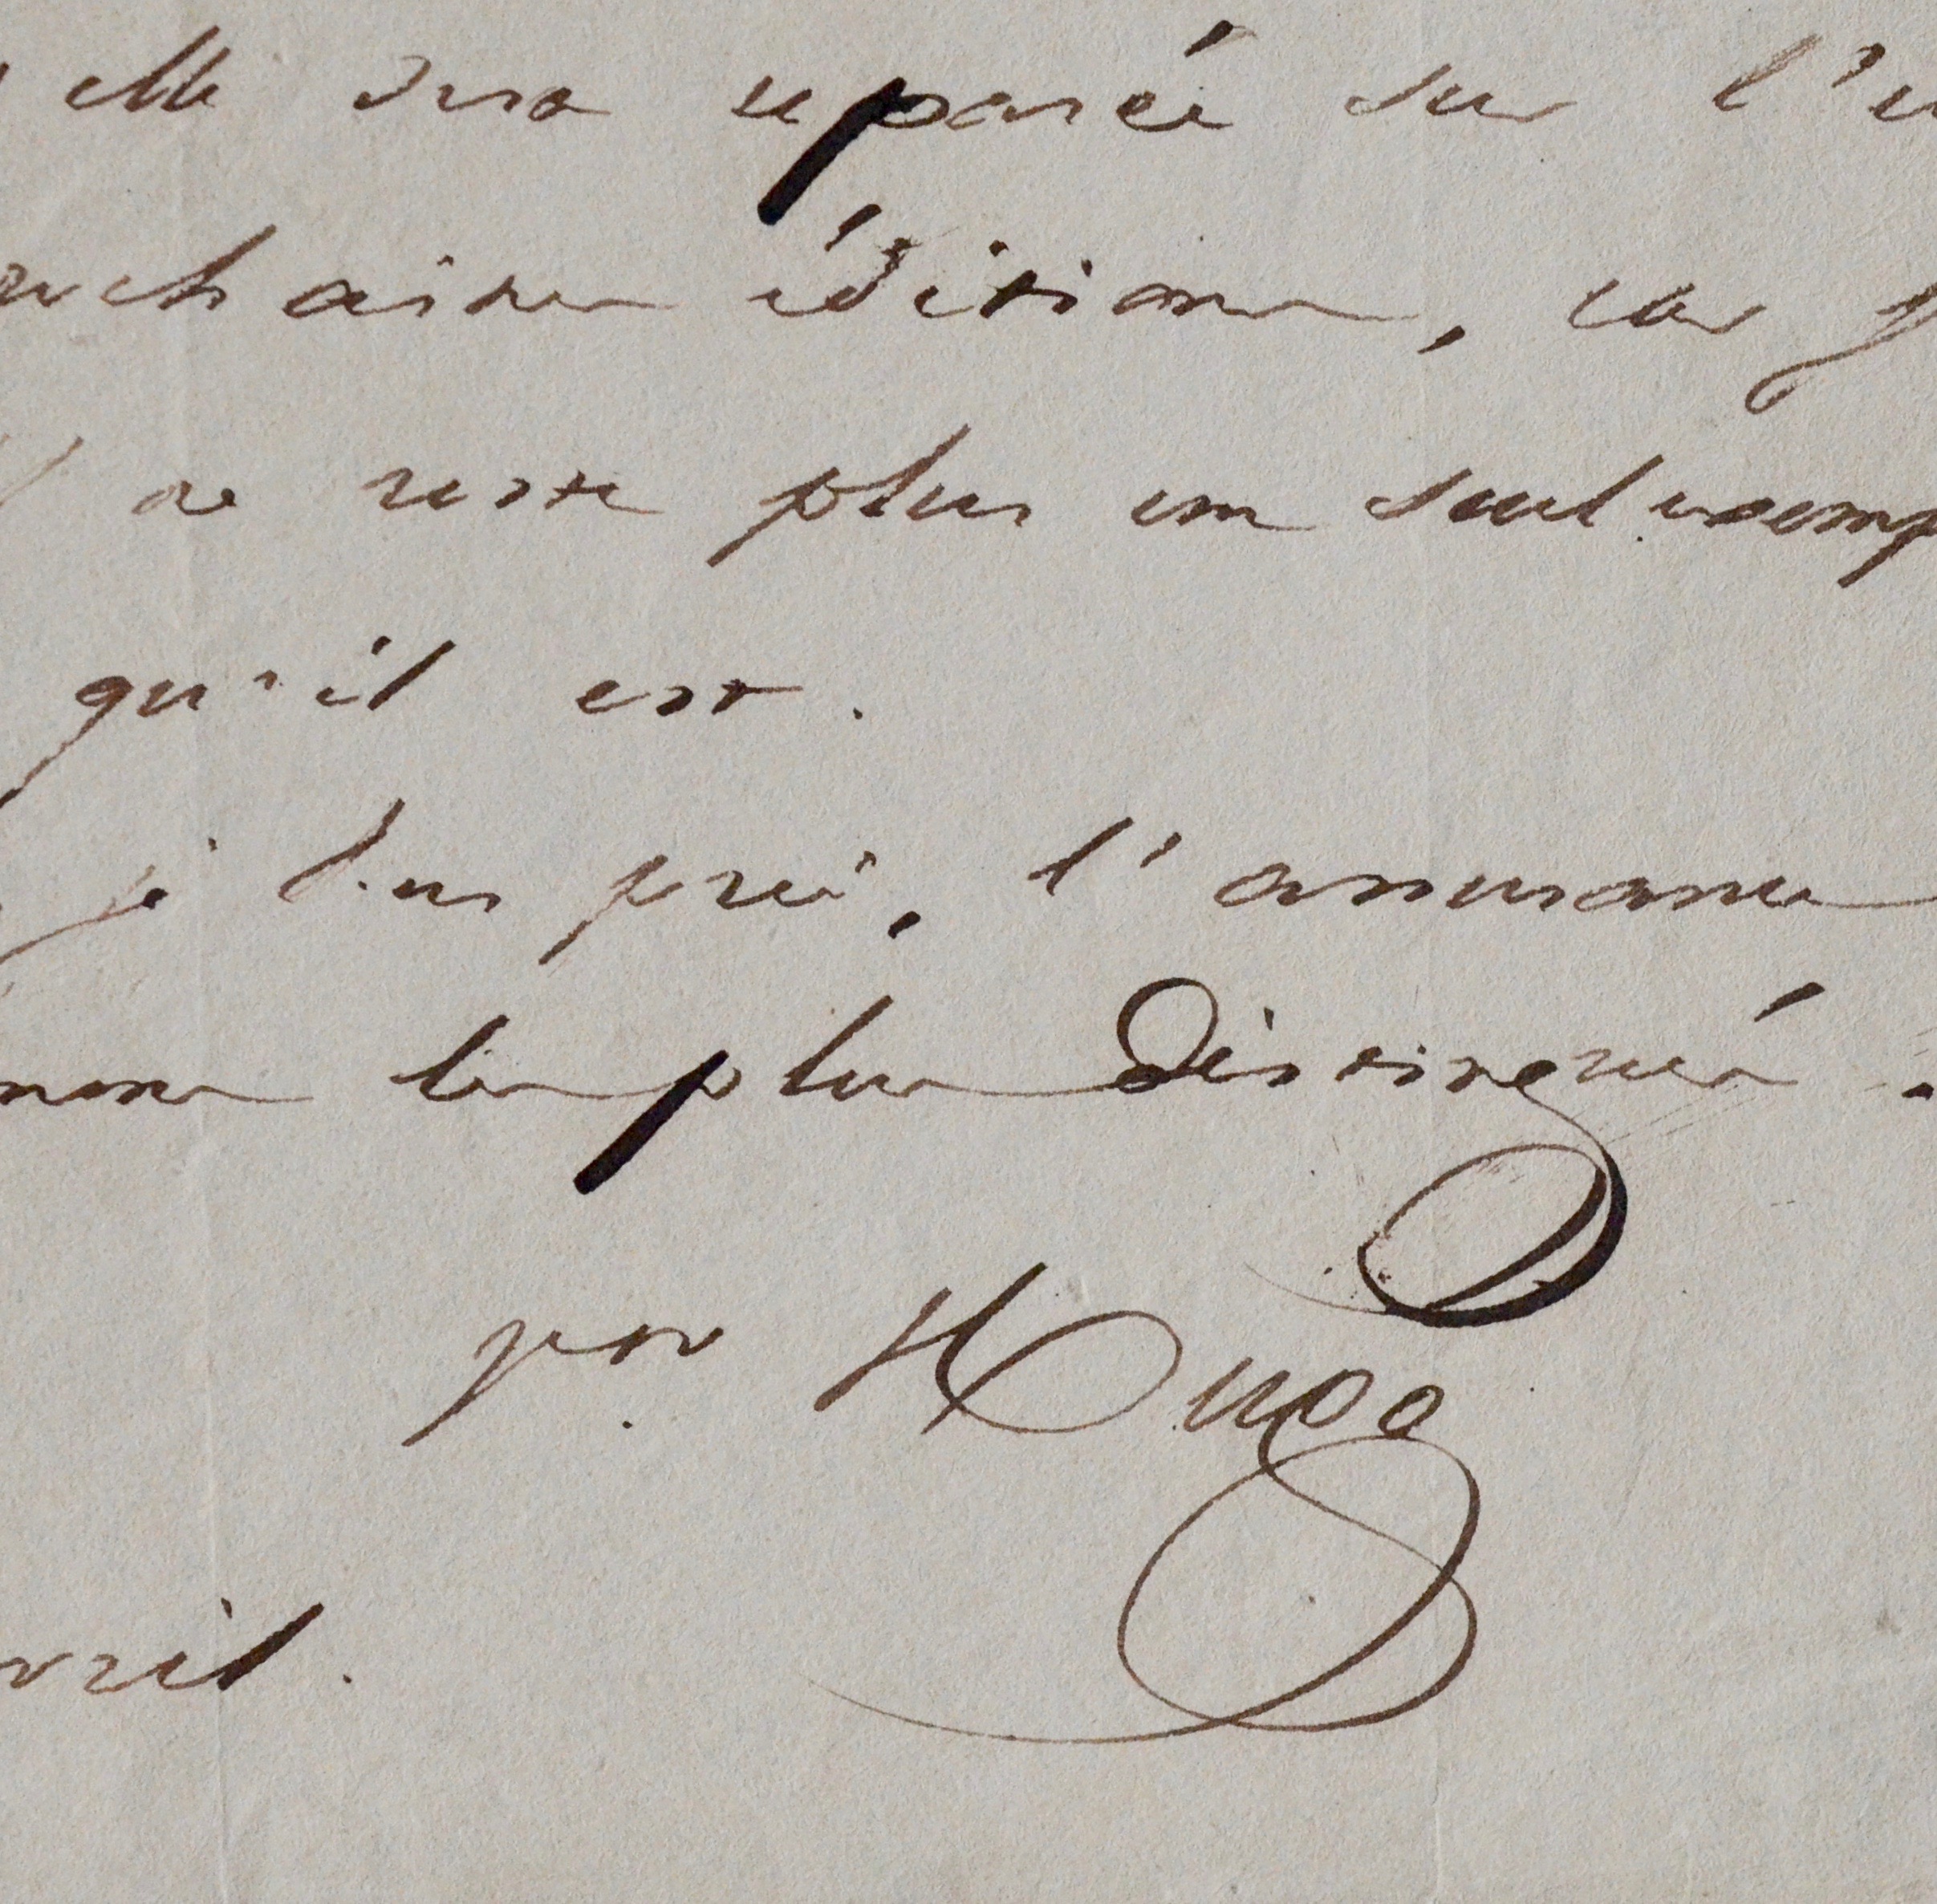 elle sera réparée sur l'u
ochaines éditions, car j
il ne reste plus un seul exemp
qu'il est.
je vous prie, l'assurance
mens les plus distingués.
por Hugo
vril.